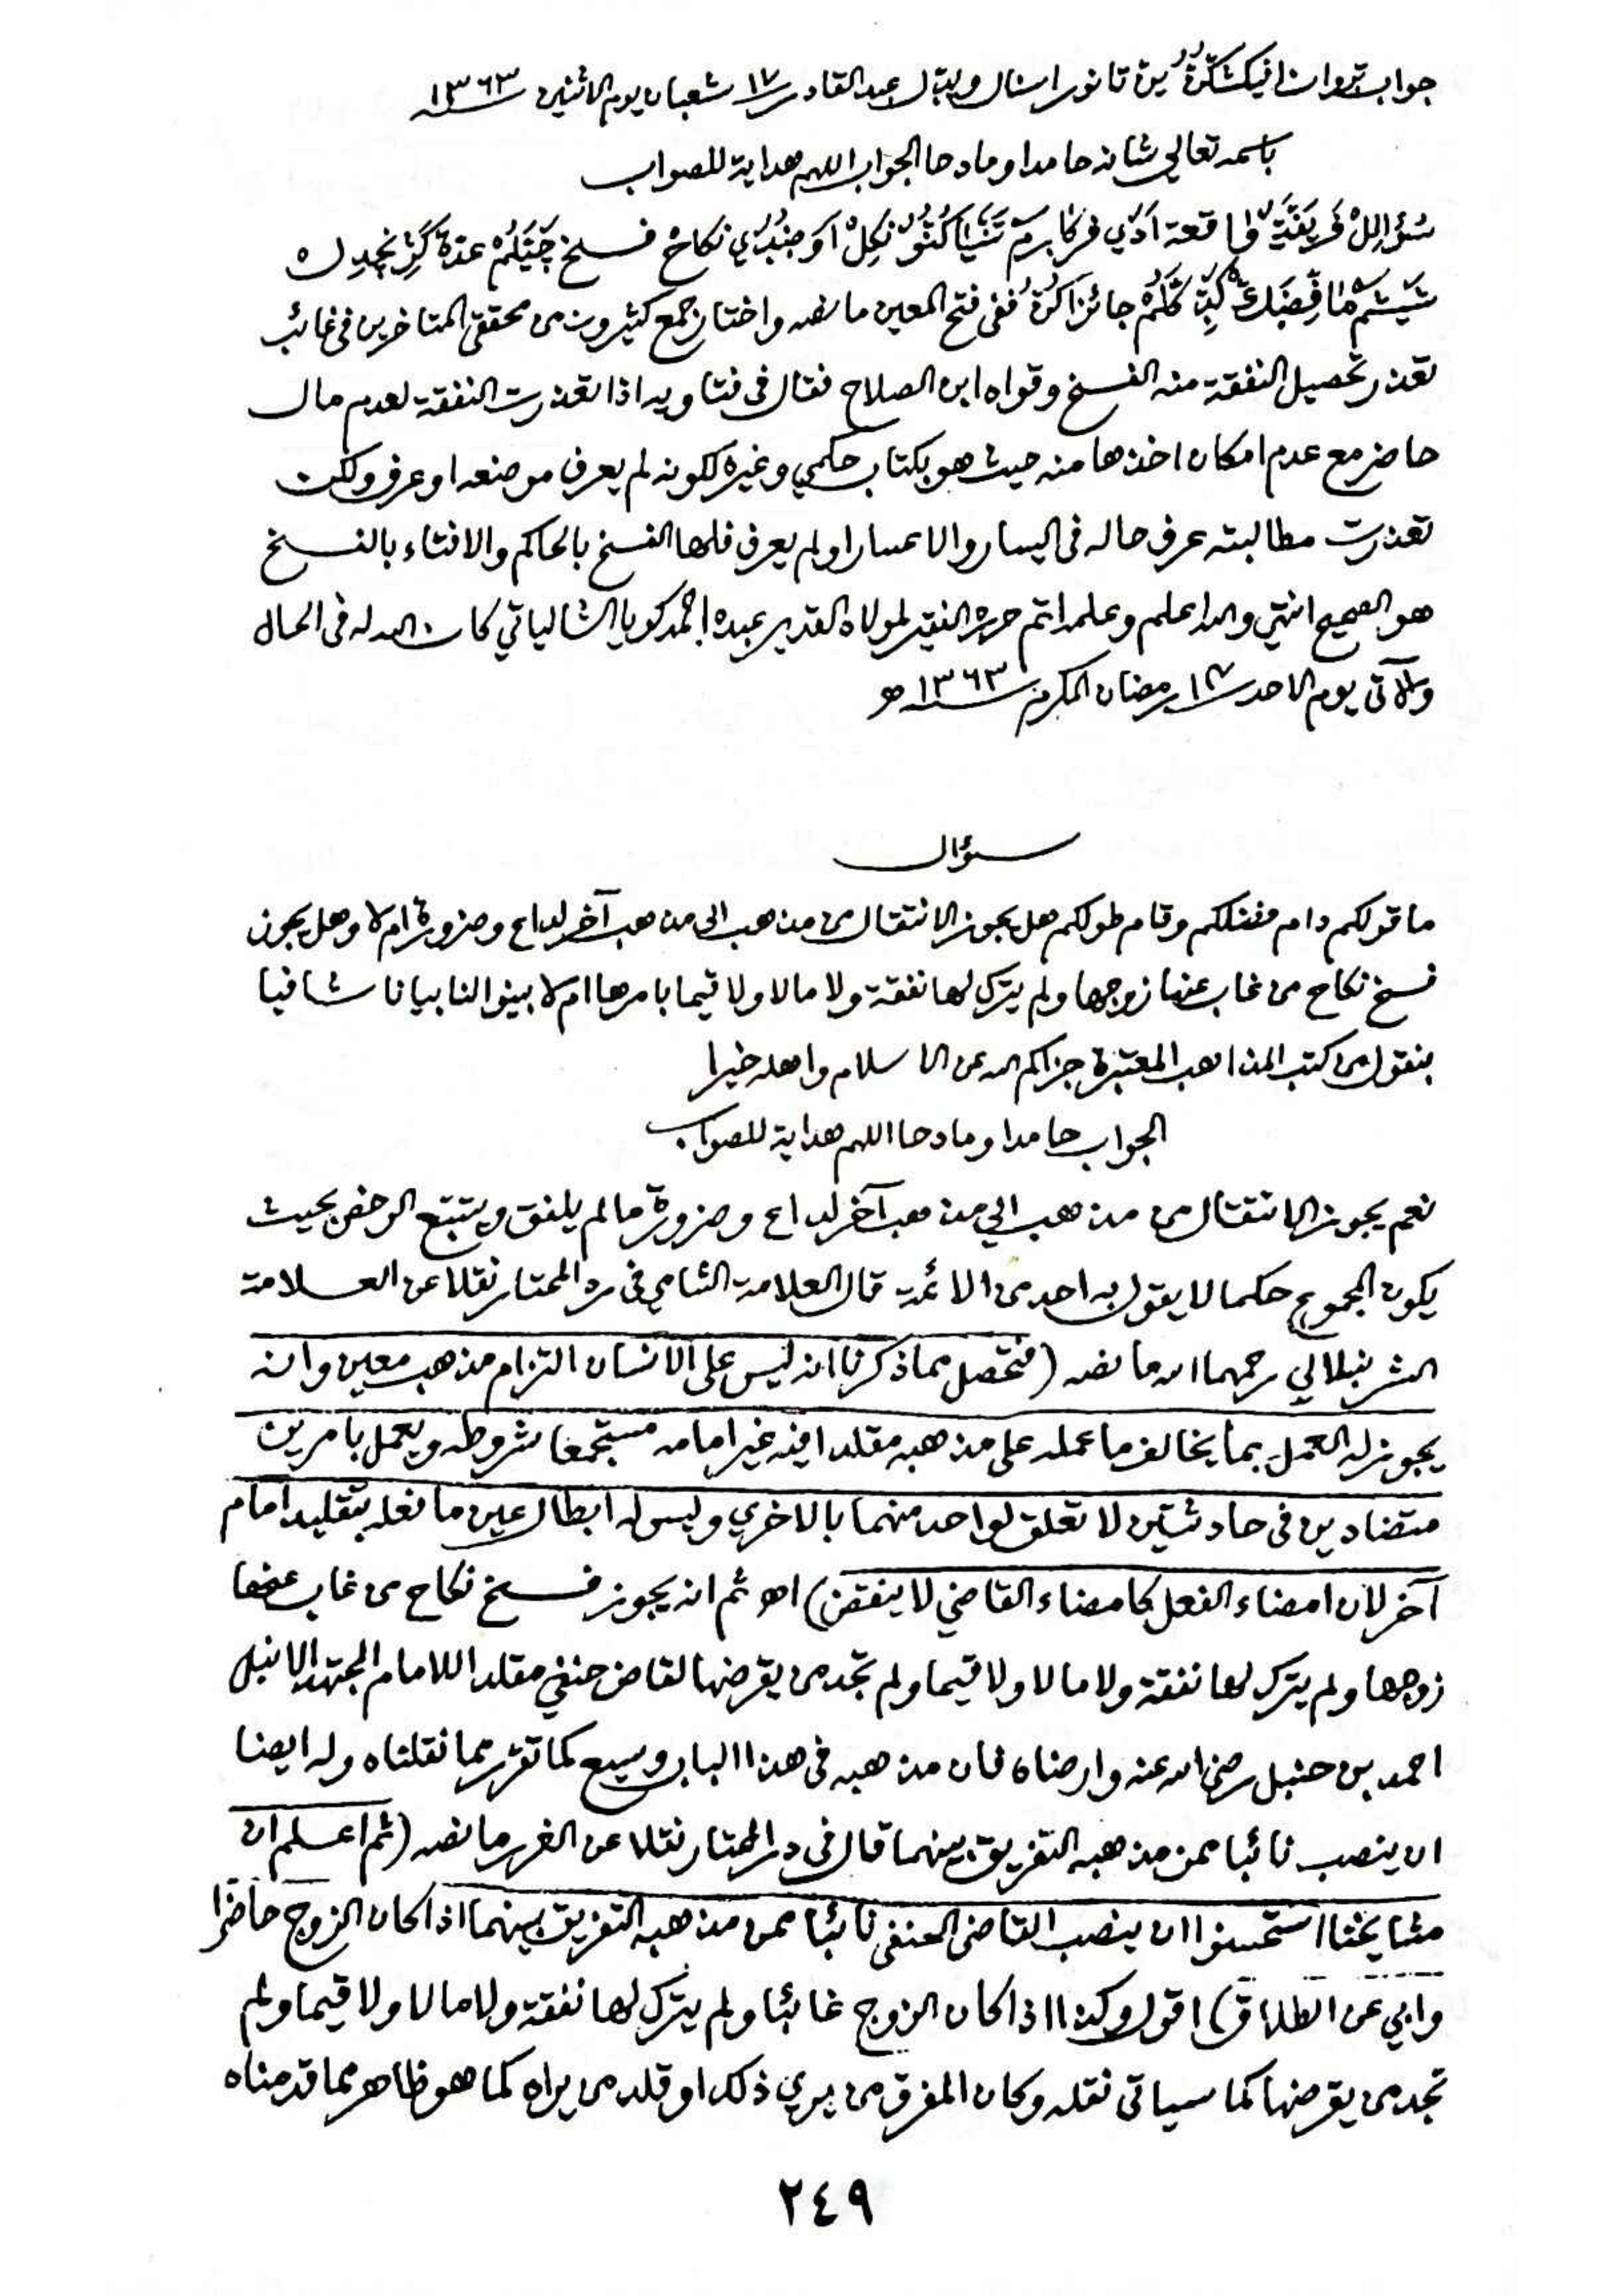 جواب تروان افيكشكنّ ين تانور اسنال ويتل عبد القادر ١٧ شعبان يوم الاثنين سنة ١٣٦٣
باسمه تعالى شانه حامدا ومادحا الجواب اللهم هداية للصواب
واقعة نكاح فسخ عدة
جائز ففي فتح المعين ما نصه واختار جمع كثيرون من محققي المتاخرين في غائب
تعذر تحصيل النفقة منه الفسخ وقواه ابن الصلاح فقال في فتاويه اذا تعذرت النفقة لعدم مال
حاضر مع عدم امكان اخذها منه حيث هو بكتاب حكمي وغيره ككونه لم يعرف موضعه او عرف ولكن
تعذرت مطالبته عرف حاله في اليسار والاعسار او لم يعرف فلها الفسخ بالحاكم والافتاء بالفسخ
هو الصحيح انتهى والله اعلم وعلمه اتم حرره الفقير لمولاه القدير عبده احمد كويا الشالياتي كان الله له في الحال
والآتي يوم الاحد ١٧ رمضان المكرم سنة ١٣٦٣ ه
سؤال
ما قولكم دام فضلكم وقام طولكم هل يجوز الانتقال من مذهب الى مذهب آخر لداع وضرورة ام لا وهل يجوز
فسخ نكاح من غاب عنها زوجها ولم يترك لها نفقة ولا مالا ولا قيما بامرها ام لا بينوا لنا بيانا شافيا
بنقول من كتب المذاهب المعتبرة جزاكم الله عن الاسلام واهله خيرا
الجواب حامدا ومادحا اللهم هداية للصواب
نعم يجوز الانتقال من مذهب الي مذهب آخر لداع وضرورة ما لم يلفق ويتتبع الرخص بحيث
يكون المجموع حكما لا يقول به احد من الائمة قال العلامة الشامي في رد المحتار نقلا عن العلامة
الشرنبلالي رحمهما الله ما نصه (فتحصل مما ذكرنا انه ليس على الانسان التزام مذهب معين وانه
يجوز له العمل بما يخالف ما عمله على مذهبه مقلدا فيه غير امامه مستجمعا شروطه ويعمل بامرين
متضادين في حادثتين لا تعلق لواحد منهما بالاخري وليس له ابطال عين ما فعله بتقليد امام
آخر لان امضاء الفعل كامضاء القاضي لا ينقض) اه ثم انه يجوز فسخ نكاح من غاب عنها
زوجها ولم يترك لها نفقة ولا مالا ولا قيما ولم تجد من يقرضها لقاض حنفي مقلدا للامام المجتهد الانبل
احمد بن حنبل رضي الله عنه وارضاه فان مذهبه في هذا الباب وسيع كما تقرر مما نقلناه وله ايضا
ان ينصب نائبا ممن مذهبه التفريق بينهما قال في در المحتار نقلا عن الغرر ما نصه (ثم اعلم ان
مشايخنا استحسنوا ان ينصب القاضي الحنفي نائبا ممن مذهبه التفريق بينهما اذا كان الزوج حاضرا
وابي عن الطلاق) اقول وكذا اذا كان الزوج غائبا ولم يترك لها نفقة ولا مالا ولا قيما ولم
تجد من يقرضها كما سياتي نقله وكان المفرق من يري ذلك او قلد من يراه كما هو ظاهر مما قدمناه
٢٤٩